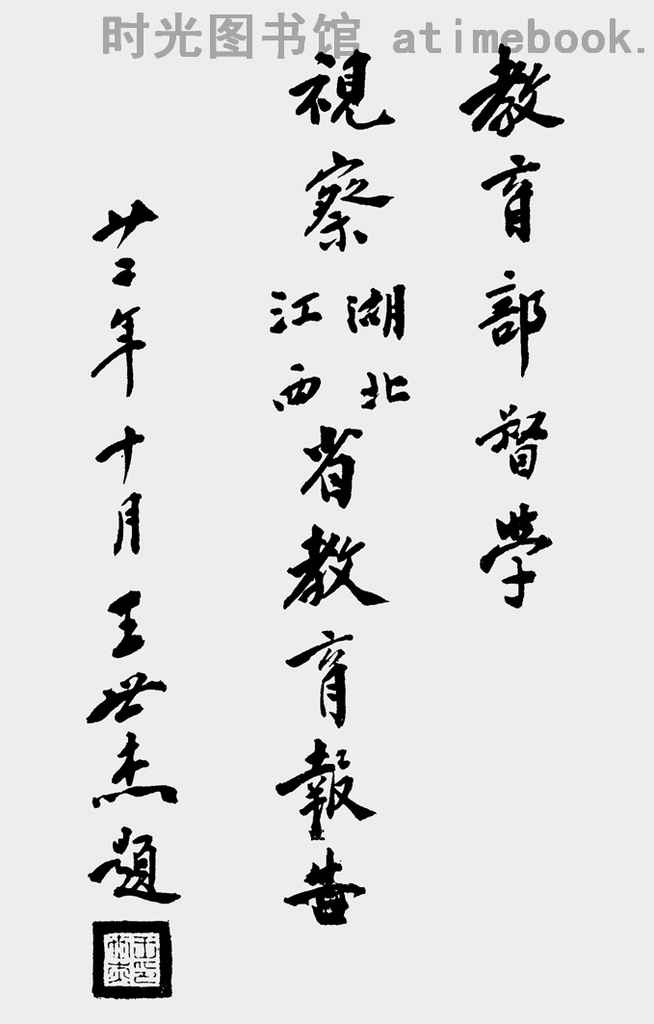 时光图书馆 atimebook.
教育部督学
視察湖北江西省教育報告
廿二年十月王世杰題